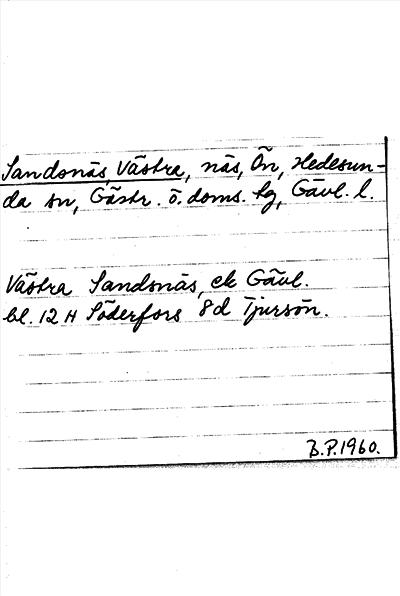 Sandsnäs, Västra, näs, Ön, Hedesun-
da sn, Gästr. ö. doms. tg, Gävl. l.
Västra Sandsnäs, ek Gävl.
bl. 12 H Söderfors 8d Tjursön.
B.P.1960.